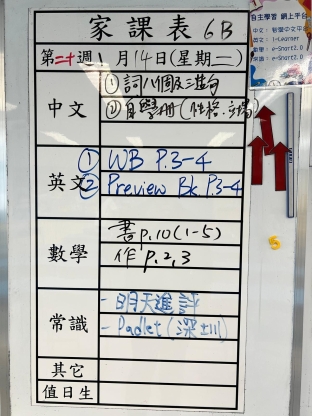 家課表 6B
第二十週 1月14日(星期二)
中文
① 詞八個及三造句
② 自學冊(性格.立場)
英文
① WB P.3-4
② Preview Bk.P.3-4
數學
書p.10(1-5)
作p.2,3
常識
- 明天進評
- Padlet(深圳)
其它
值日生
自主學習 網上平台
中文:智愛中文平台
英文:i-Learner
數學:e-Smart2.0
常識:e-Smart2.0